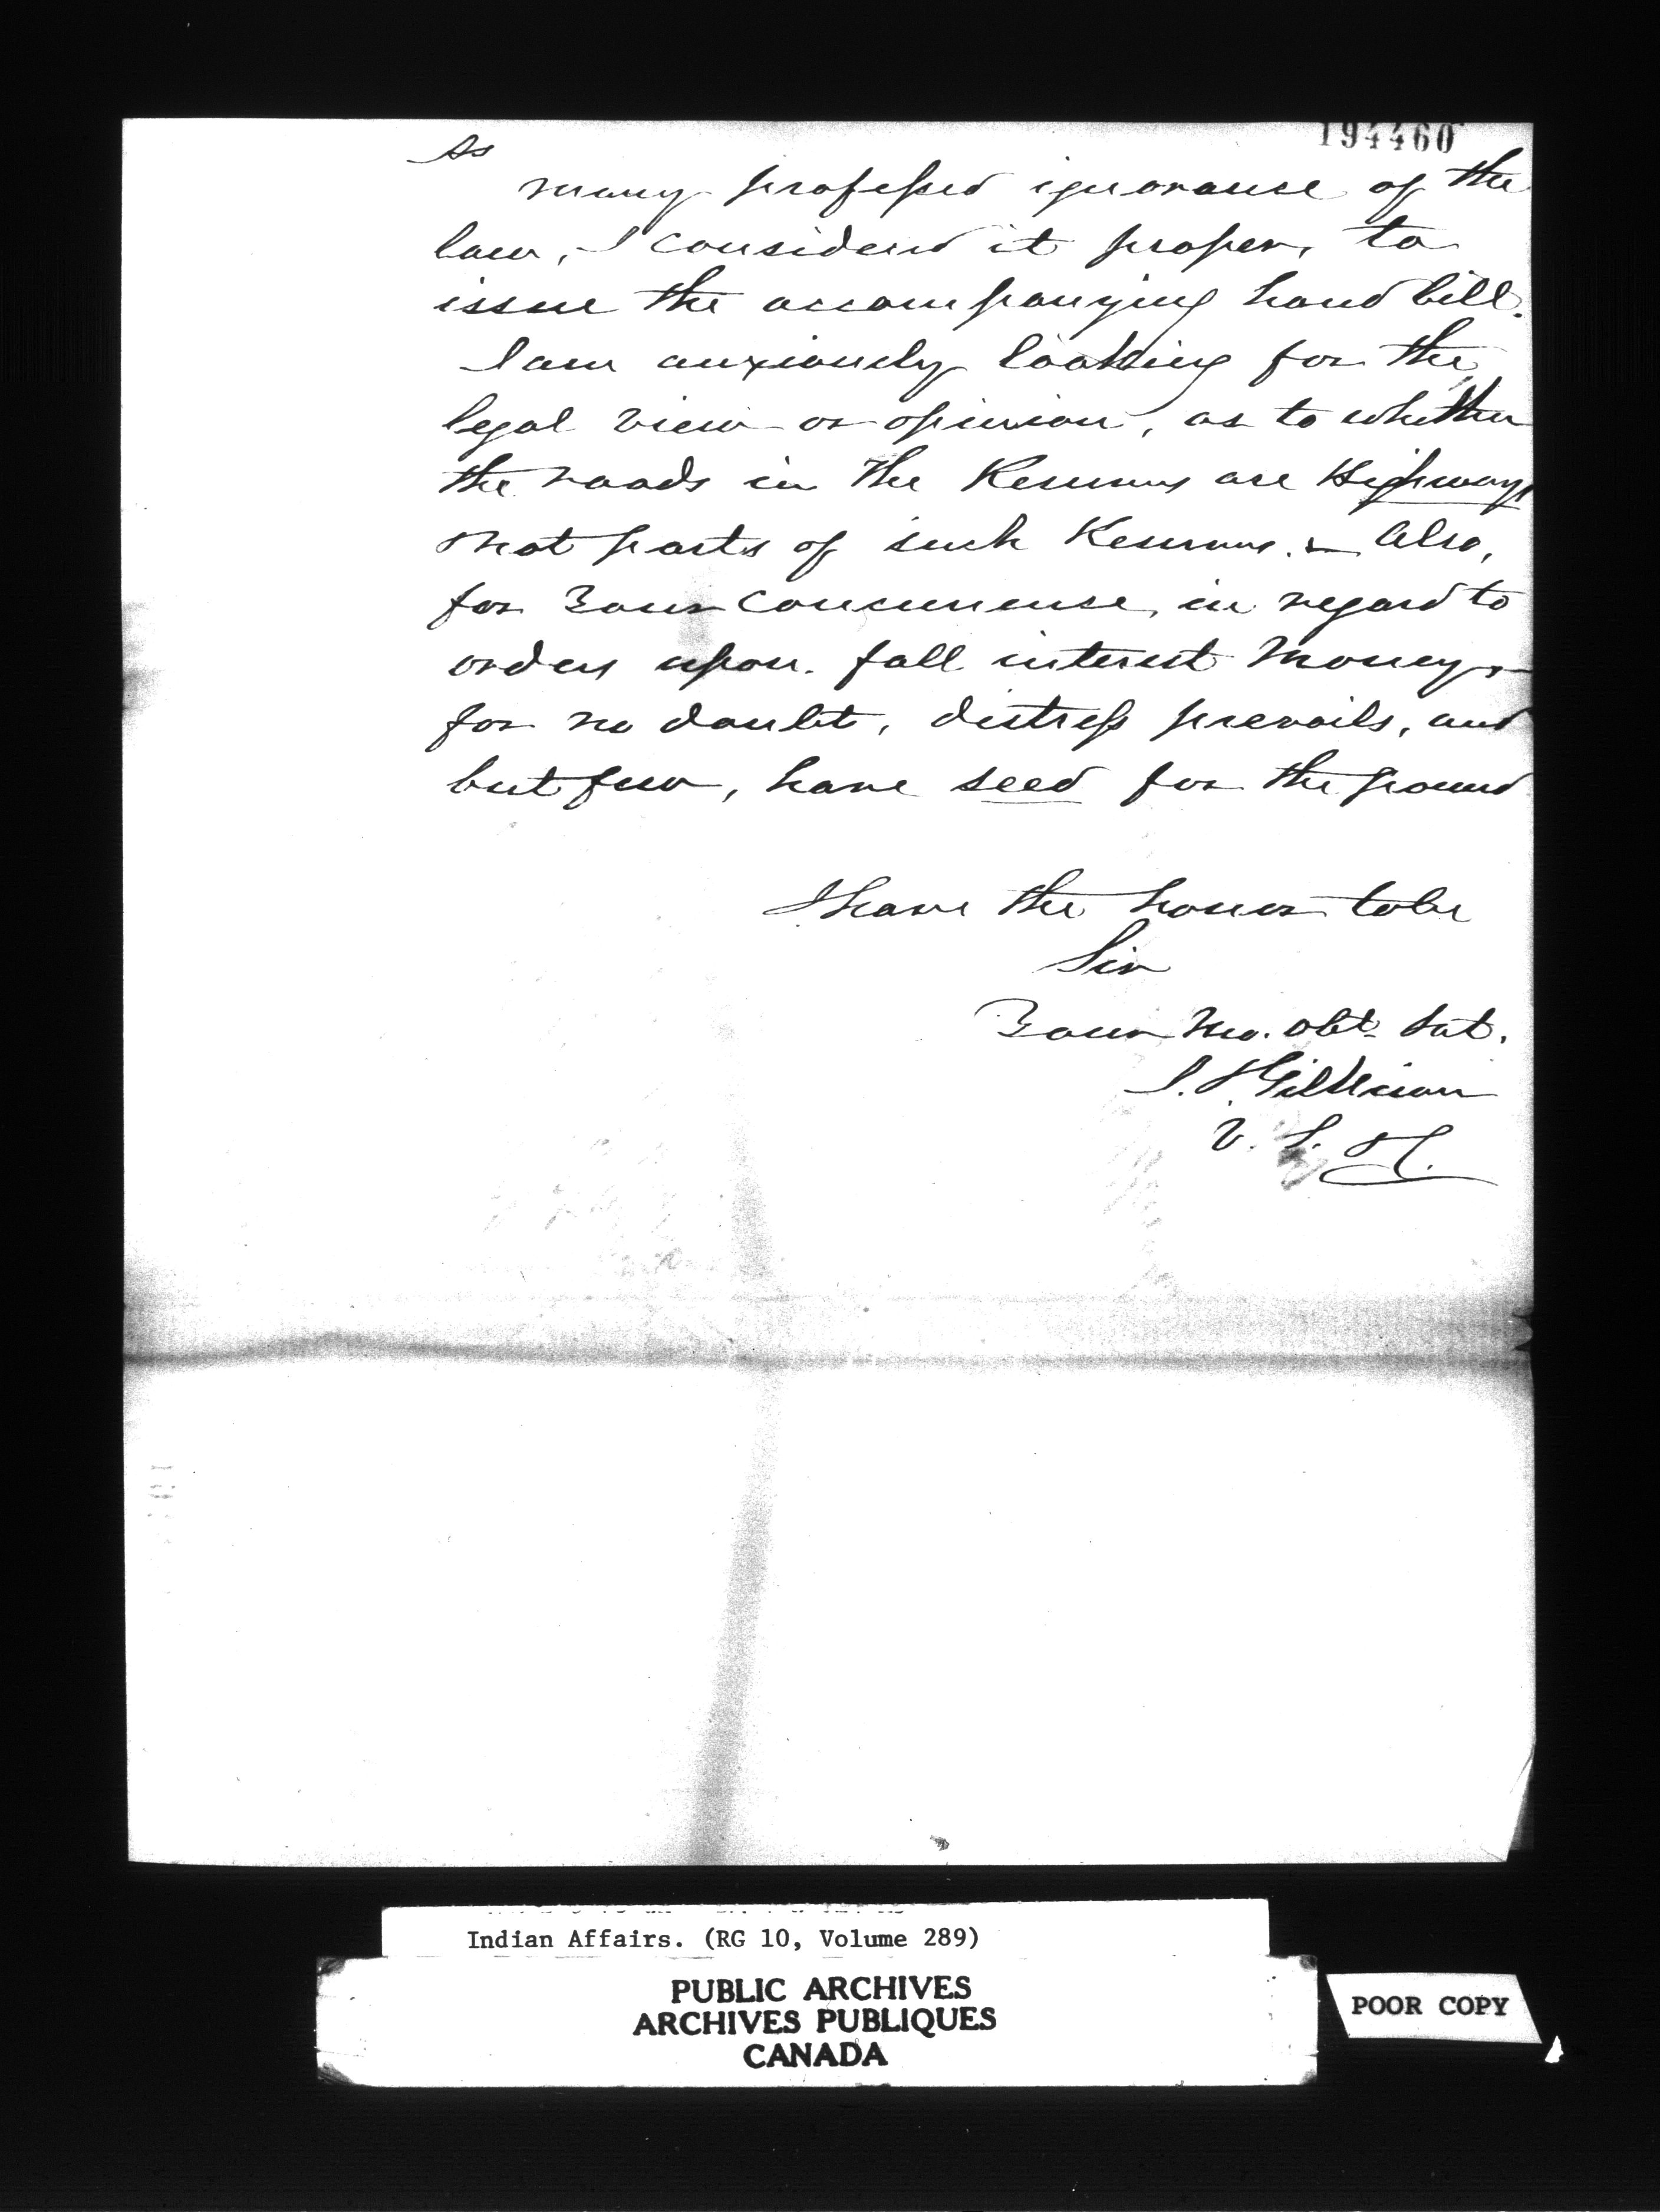 194460
As
many professed ignorance of the
law, I considered it proper, to
issue the accompanying hand bill.
I am anxiously looking for the
legal view or opinion, as to whether
the roads in the Reserves are Highways
& not parts of such Reserves. & Also,
for Your concurrence, in regard to
orders upon fall interest money,
for no doubt, distress prevails, and
but few, have seed for the ground
I have the honor to be
Sir
Your Mo. Obt. Svt.
J. T. Gilkison
V. S. 
Indian Affairs. (RG 10, Volume 289)
PUBLIC ARCHIVES
ARCHIVES PUBLIQUES
CANADA
POOR COPY